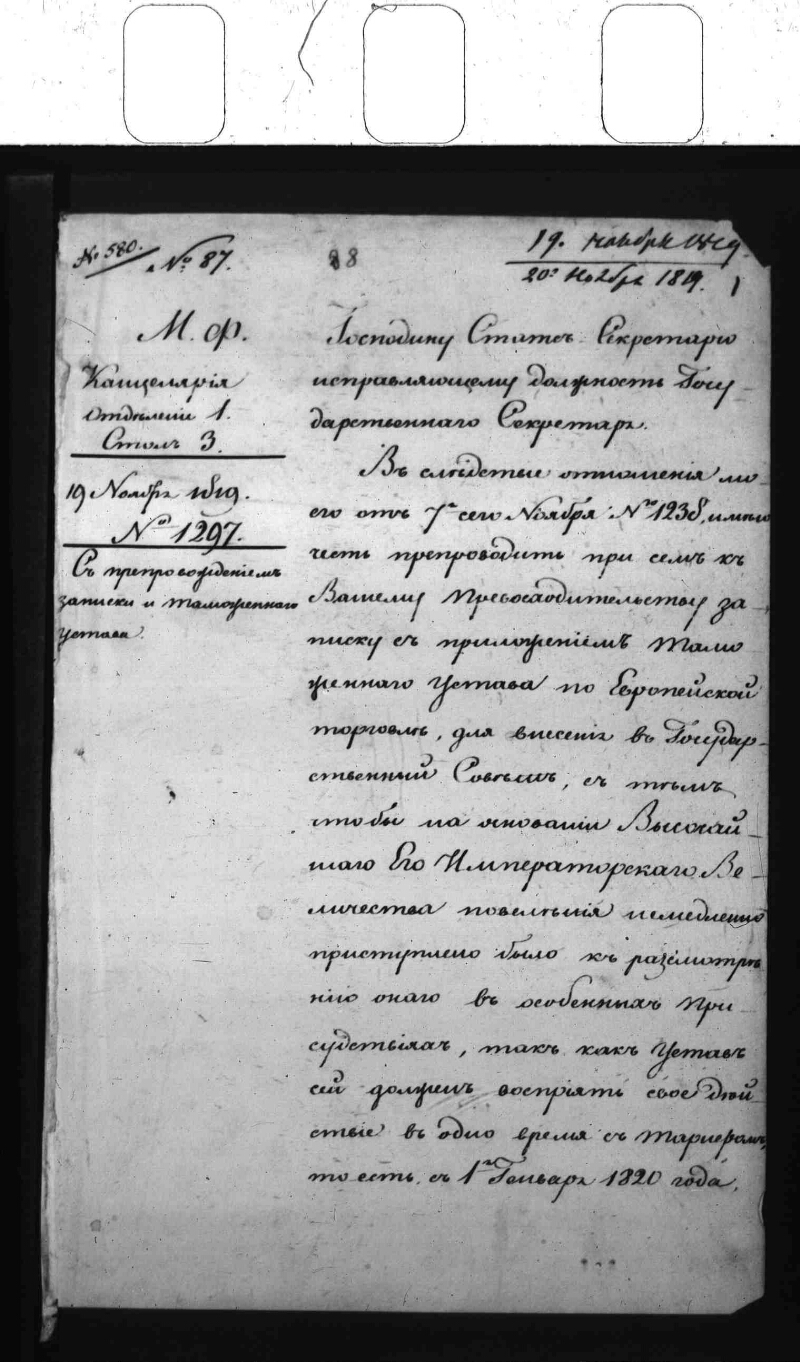 № 580.
№ 87.
88
19. Ноября 1819.
20го Ноября 1819.
М. Ф.
Канцелярія
Отдѣленіи 1.
Столъ 3.
19 Ноября 1819.
№ 1297.
Съ препровожденіемъ
записки и таможеннаго
устава.
Господину Статсъ Секретарю
исправляющему должность Госу
дарственнаго Секретаря.
Въ слѣдствіе отношенія мо
его отъ 7го сего Ноября № 1238, имѣю
честь препроводить при семъ къ
Вашему Превосходительству за-
писку съ приложеніемъ Тамо
женнаго Устава по Европейской
торговлѣ, для внесенія въ Государ-
ственный Совѣтъ, съ тѣмъ
чтобы на основаніи Высочай-
шаго Его Императорскаго Ве-
личества повелѣнія немедленно
приступлено было къ разсмотрѣ
нію онаго въ особенныхъ При-
судствіяхъ, такъ какъ Уставъ
сей долженъ воспріять свое дѣй-
ствіе въ одно время съ Тарифомъ,
то есть съ 1го Генваря 1820 года.